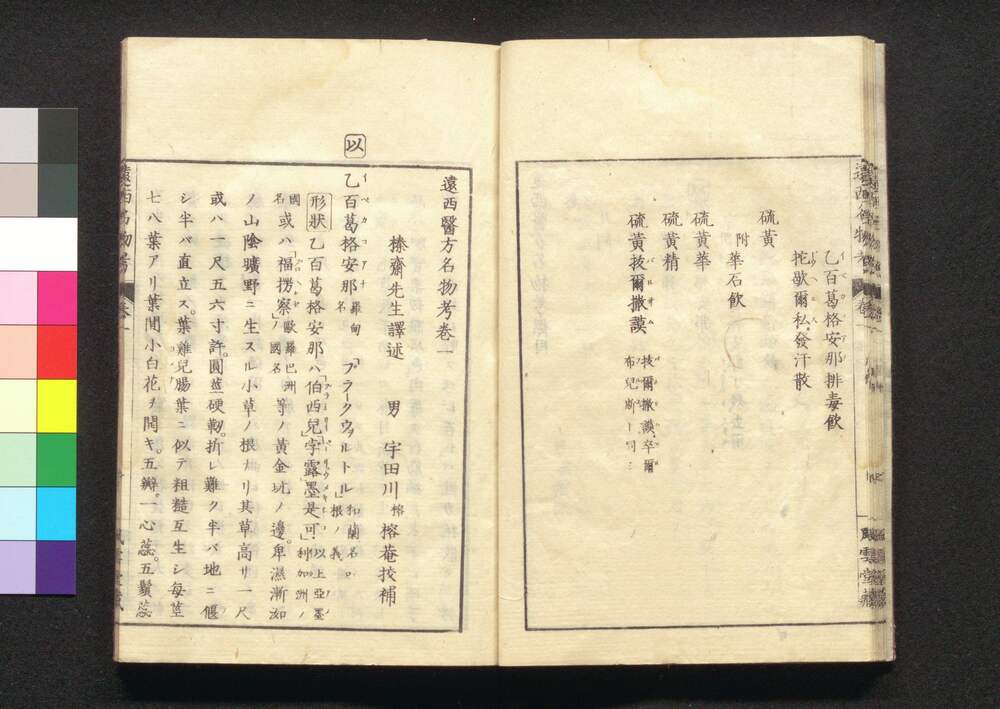 乙百葛格安那排毒飲
㧌歇爾私發汗散
硫黄
附 華石飲
硫黄華
硫黄精
硫黄拔爾撒謨 拔爾撒謨卒爾
遠西醫方名物考卷一
榛齋先生譯述 男 宇田川榕 榕菴挍補
以
乙百葛格安那 羅甸名 「ブラークウヲルトル 和蘭名○根ノ義
形狀 乙百葛格安那ハ伯西兒「孛露」「墨是可」 以上亞墨利加洲ノ國名
或ハ「福拐察」 歐羅巴洲ノ國名 等ノ黄金坑ノ邊卑濕漸洳
ノ山陰曠野ニ生スル小草ノ根ナリ其草高サ一尺
或ハ一尺五六寸許圓莖硬靭折レ難ク半バ地ニ偃
シ半バ直立ス葉雞兒膓葉ニ似テ粗糙互生シ每莖
七八葉アリ葉間小白花ヲ開キ五瓣一心蕊五鬚蕊